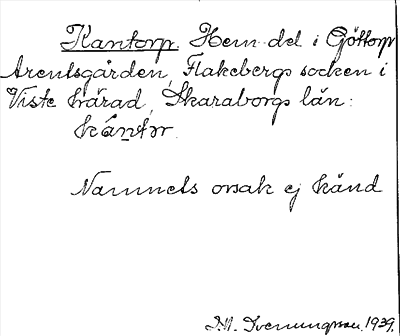 Kantorp. Hem.del i Göttorp
Arentsgården, Flakebergs socken i
Viste härad, Skaraborgs län:
kántor.
Namnets orsak ej känd
1939.